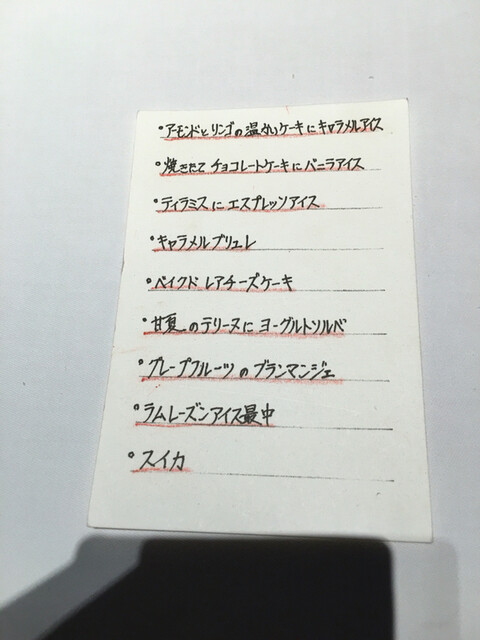 °アーモンドとリンゴの温かいケーキにキャラメルアイス
°焼きたてチョコレートケーキにバニラアイス
°ティラミスにエスプレッソアイス
°キャラメルブリュレ
°ベイクドレアチーズケーキ
°甘夏のテリーヌにヨーグルトソルベ
°グレープフルーツのブランマンジェ
°ラムレーズンアイス最中
°スイカ